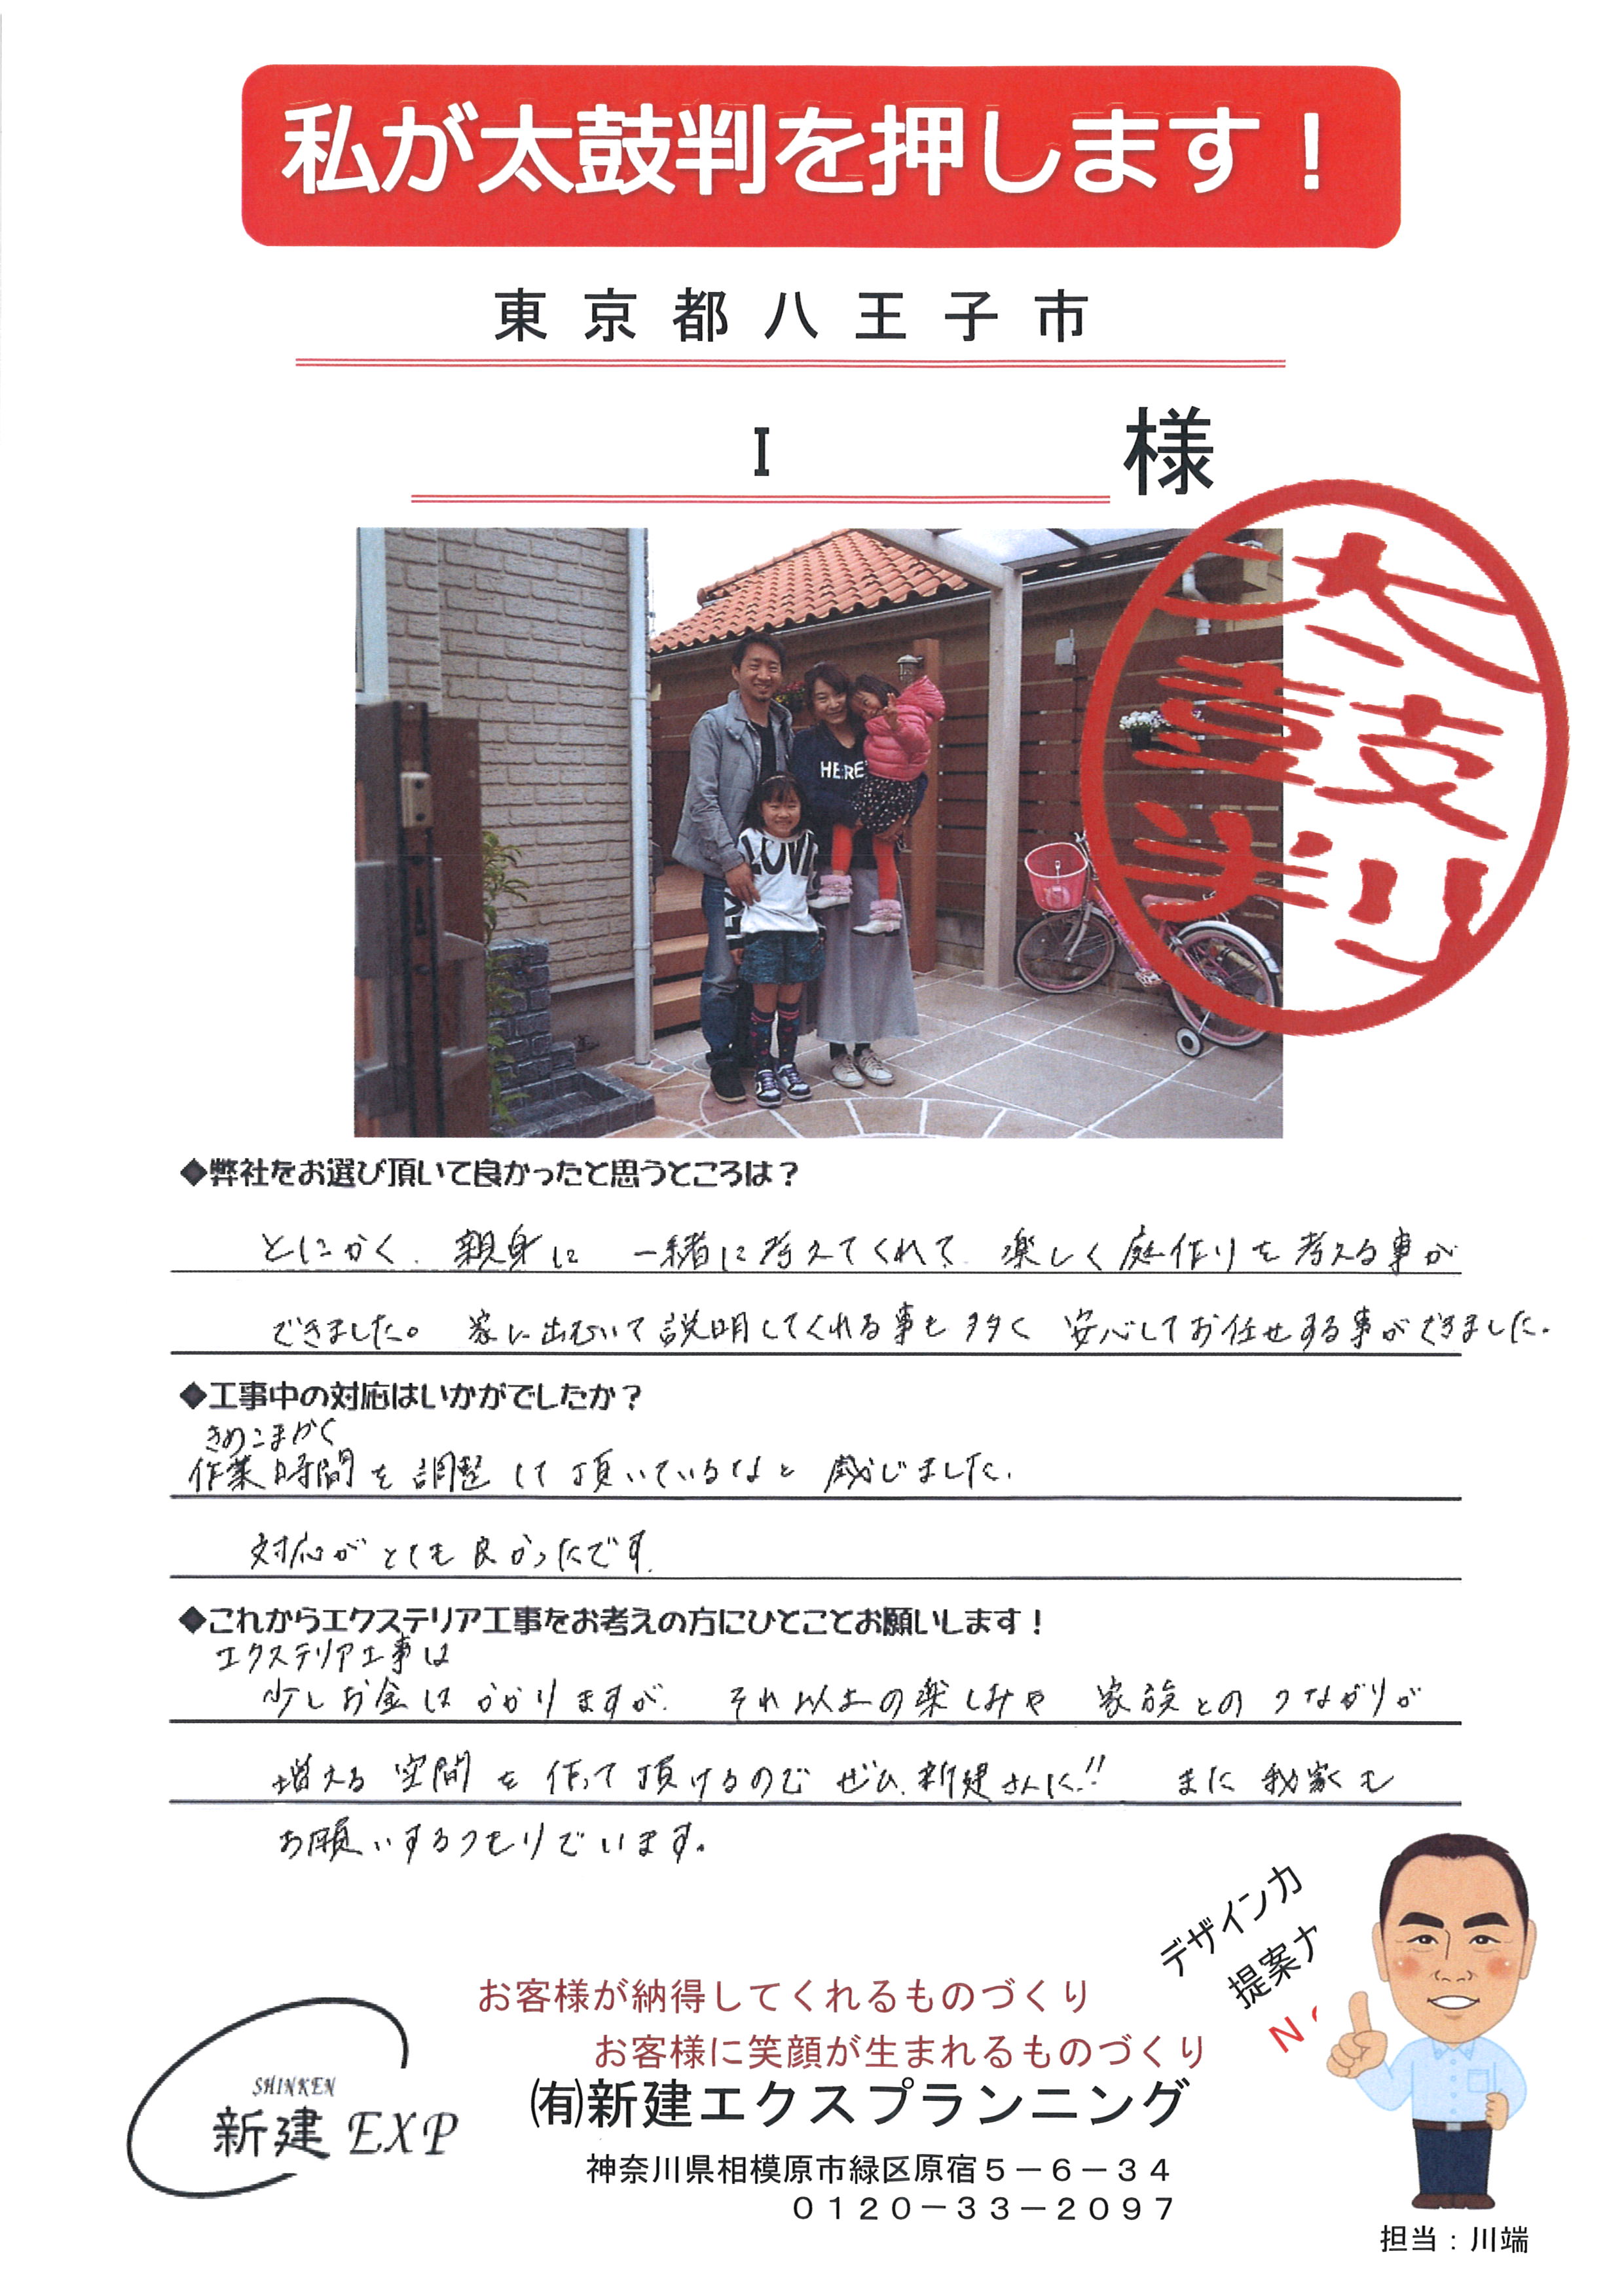 私が太鼓判を押します！
東京都八王子市
I 様
太鼓判
HERE
LOVE
◆弊社をお選び頂いて良かったと思うところは？
とにかく、親身に 一緒に考えてくれて、楽しく庭作りを考える事が
できました。 家に出むいて説明してくれる事も多く 安心してお任せする事ができました。
◆工事中の対応はいかがでしたか？
きめこまかく
作業時間を調整して頂いているなと 感じました。
対応がとても良かったです。
◆これからエクステリア工事をお考えの方にひとことお願いします！
エクステリア工事は
少しお金はかかりますが、それ以上の楽しみや 家族とのつながりが
増える空間を作って頂けるので ぜひ、新建さんに!! また我家も
お願いするつもりでいます。
デザイン力
提案力
お客様が納得してくれるものづくり
お客様に笑顔が生まれるものづくり
SHINKEN
新建 EXP
㈲新建エクスプランニング
神奈川県相模原市緑区原宿５－６－３４
０１２０－３３－２０９７
担当：川端